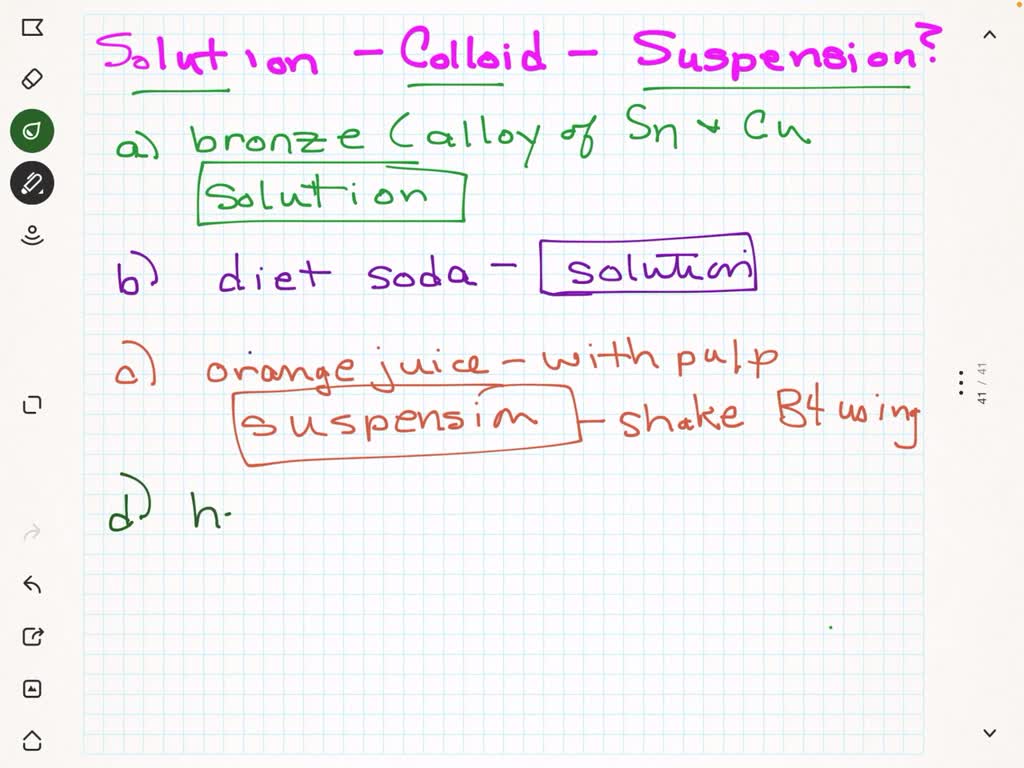 Solution - Colloid - Suspension?
a) bronze (alloy of Sn + Cu
solution
b) diet soda - solution
c) orange juice - with pulp
suspension - shake B4 using
d) h
41 / 41